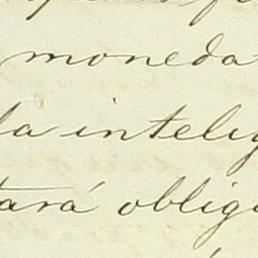 moneda
la intelig
tará oblig